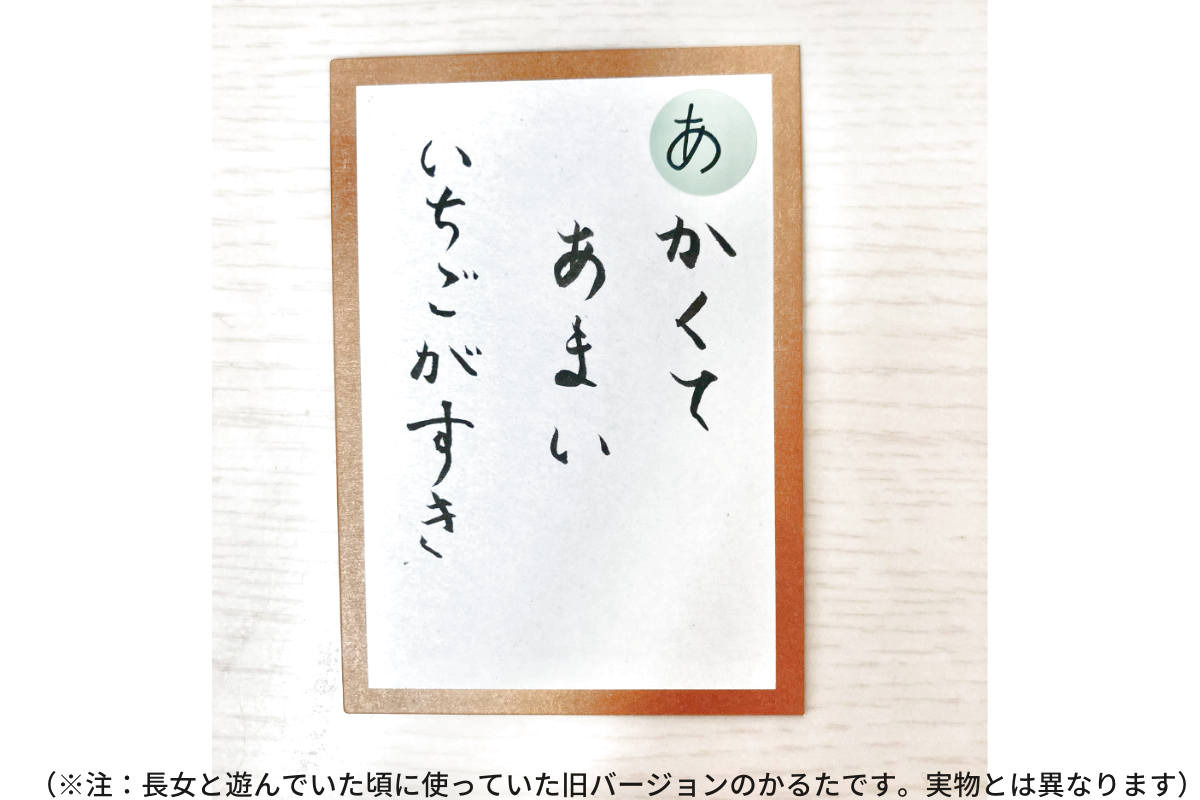 あかくて
あまい
いちごがすき
（※注：長女と遊んでいた頃に使っていた旧バージョンのかるたです。実物とは異なります）